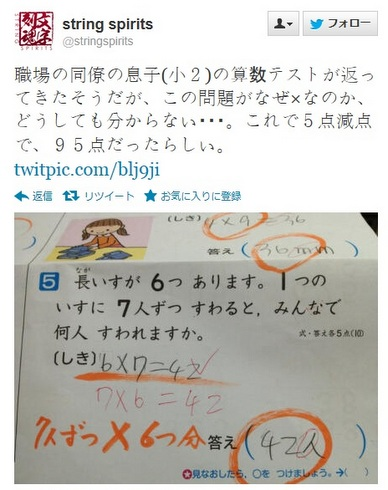 string spirits
@stringspirits
フォロー
職場の同僚の息子(小２)の算数テストが返っ
てきたそうだが、この問題がなぜ×なのか、
どうしても分からない・・・。これで５点減点
で、９５点だったらしい。
twitpic.com/blj9ji
返信 リツイート お気に入りに登録
(しき) 4×9=36
答え (36mm)
5 長いすが 6つ あります。1つの
なが
いすに 7人ずつ すわると，みんなで
何人 すわれますか。
式・答え各5点(10)
(しき) 6×7=42
7×6=42
7人ずつ×6つ分 答え (42人)
見なおしたら，○を つけましょう。→( )